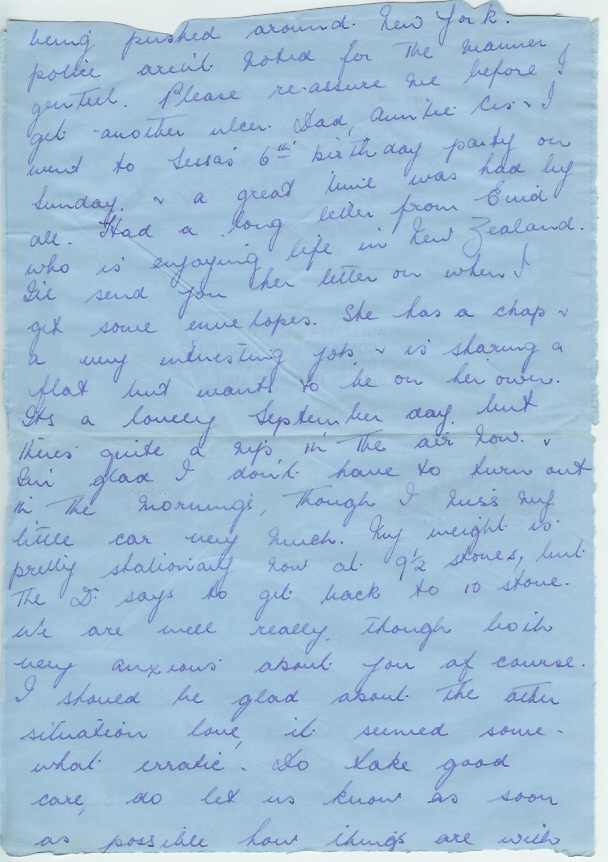 being pushed around. New York.
police aren't noted for the manner
genteel. Please re-assure me before I
get another ulcer. Dad, Auntie Cis & I
went to Lessa's 6th birthday party on
Sunday. & a great time was had by
all. Had a long letter from Enid
who is enjoying life in New Zealand.
I'll send you her letter on when I
get some envelopes. She has a chap &
a very interesting job, & is sharing a
flat but wants to be on her own.
Its a lovely September day, but
theres quite a nip in the air now. &
I'm glad I don't have to turn out
in the mornings, though I miss my
little car very much. My weight is
pretty stationary now at 9½ stones, but
the Dr says to get back to 10 stone.
We are well really, though both
very anxious about you of course.
I should be glad about the other
situation love, it seemed some-
what erratic. Do take good
care, do let us know as soon
as possible how things are with